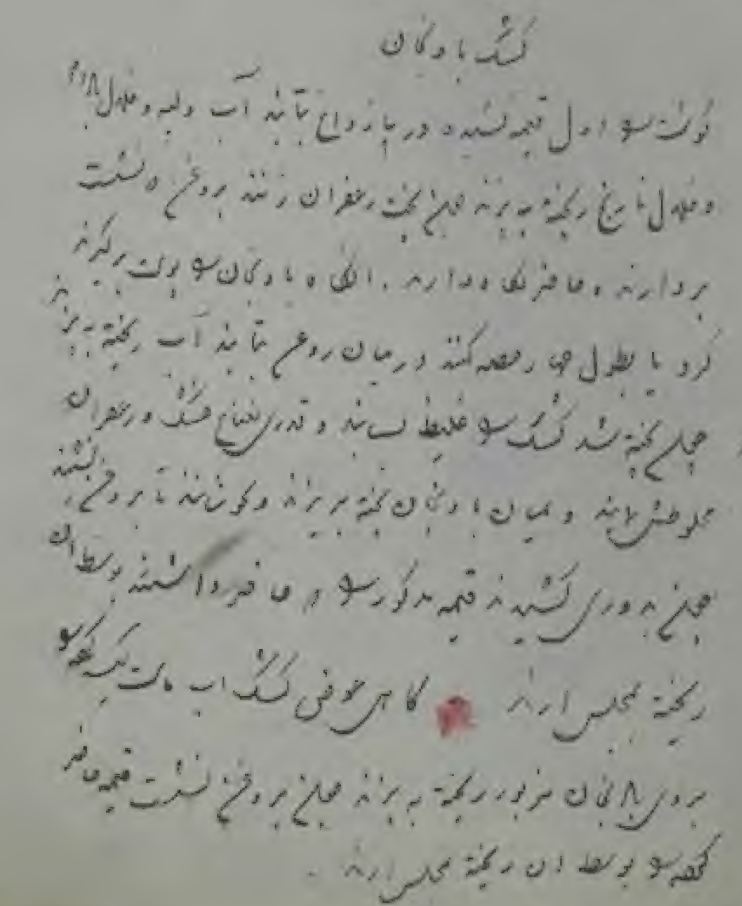 کشک بادنجان
گوشت را اول قیمه کشیده در پیاز داغ بتابند آب و لپه و خلال بادام
و خلال نارنج ریخته بپزند چون پخت زعفران زنند بروغن که نشست
بردارند و حاضر نگاه دارند . آنگاه بادنجان را پوست برگیرند
گرد یا بطول چهار حصه کنند در میان روغن بتابند آب ریخته بپزند
چون پخته شد کشک را غلیظ بسابند و قدری نعناع خشک و زعفران
مخلوطش نمایند و بمیان بادنجان پخته بریزند و جوشانند تا بروغن نشیند
چون بدوری کشیدند قیمه مذکور را که حاضر داشتند بوسط آن
ریخته بمجلس آرند گاهی عوض کشک آب ماست چکیده را
بروی بادنجان مزبور ریخته بپزند چون بروغن نشست قیمه حاضر
را بوسط آن ریخته بمجلس آرند .